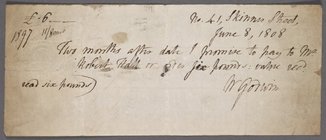 £-6-
No. 41, Skinner Street,
1897
June 8, 1808
Two months after date I promise to pay to Mr
Robert Hall or order six pounds, value recd
six pounds)
W Godwin